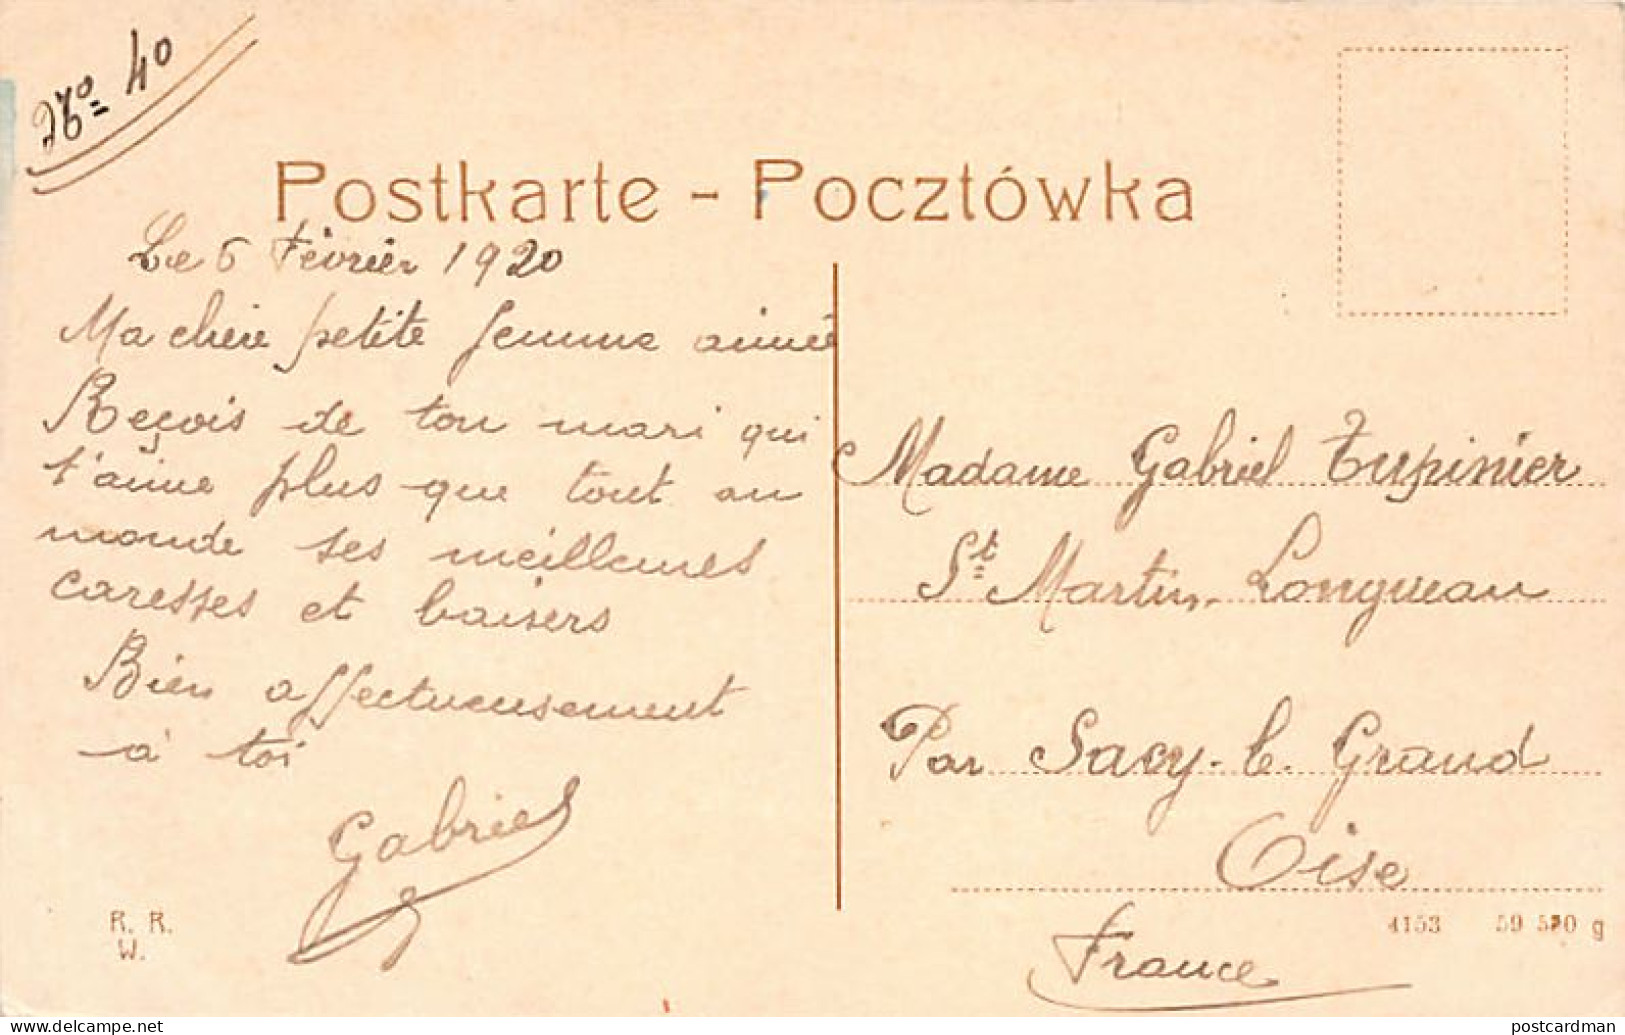 No= 40
Postkarte - Pocztówka
Le 6 Février 1920
Ma chère petite femme aimée
Reçois de ton mari qui
t'aime plus que tout au
monde ses meilleures
caresses et baisers
Bien affectueusement
à toi
Gabriel
R. R.
W.
Madame Gabriel Tupinier
St Martin-Longueau
Par Sacy-le-Grand
Oise
France
4153 59 570 g
postcardman
www.delcampe.net